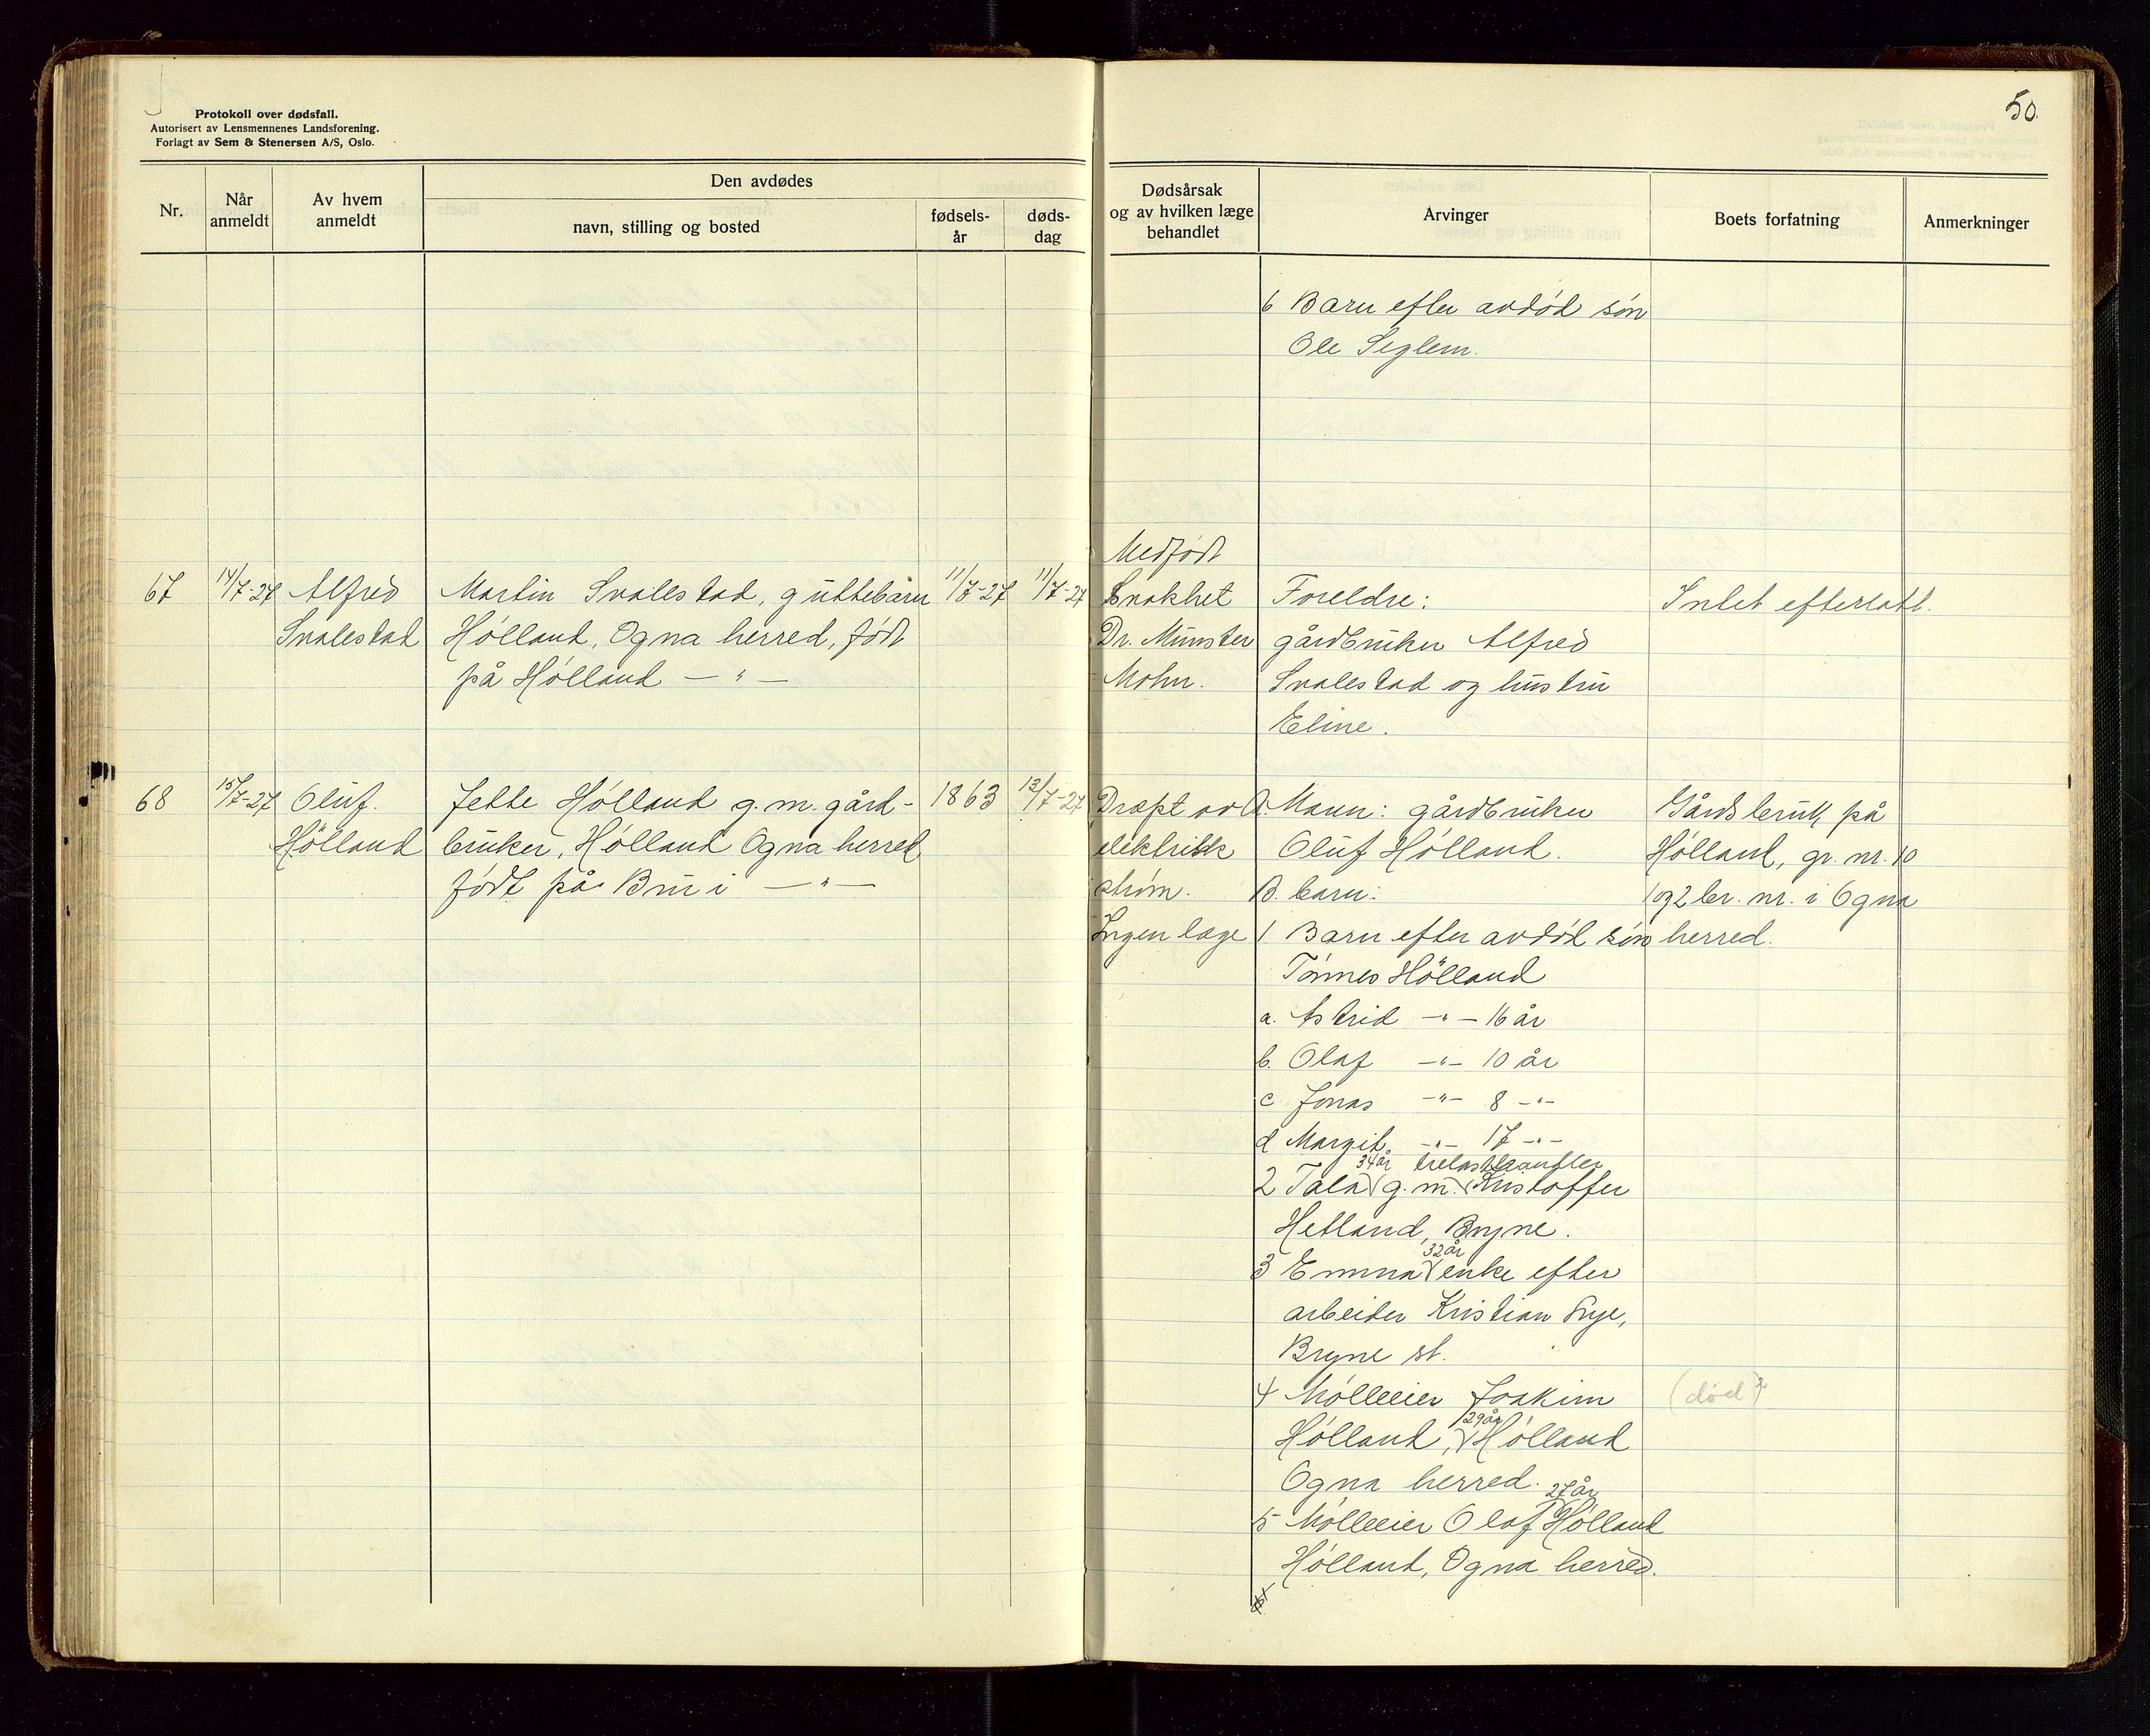 Protokoll over dødsfall.
Autorisert av Lensmennenes Landsforening.
Forlagt av Sem & Stenersen A/S, Oslo.
50.
Nr.
Når
anmeldt
Av hvem
anmeldt
Den avdødes
navn, stilling og bosted
fødsels-
år
døds-
dag
Dødsårsak
og av hvilken læge
behandlet
Arvinger
Boets forfatning
Anmerkninger
6 Barn efter avdød søn
Ole Seglem.
67
14/7-27
Alfred
Svalestad
Martin Svalestad, guttebarn
Hølland, Ogna herred, født
på Hølland — " —
11/7-27
11/7-27
Medfødt
Svakhet
Dr. Münster
Mohn.
Foreldre:
gårdbruker Alfred
Svalestad og hustru
Eline.
Intet efterlatt.
68
15/7-27
Oluf
Hølland
Jette Hølland g. m. gård-
bruker, Hølland Ogna herred
født på Bru i — " —
1863
12/7-27
Dræpt av
elektrisk
strøm.
Ingen læge
A. Mann: gårdbruker
Oluf Hølland.
B. barn:
1 Barn efter avdød søn
Tønnes Hølland
a. Astrid —"— 16 år
b. Olaf —"— 10 år
c Jonas —"— 8 —"—
d Margit —"— 17 —"—
34 år trelasthandler
2 Tala g. m. Kristoffer
Hetland, Bryne.
32 år
3 Emma enke efter
arbeider Kristian Frye,
Bryne st.
4 Mølleeier Joakim
29 år
Hølland, Hølland
Ogna herred.
27 år
5 Mølleeier Olaf Hølland
Hølland, Ogna herred.
Gårdsbruk på
Hølland, gr. nr. 10
1 og 2 br. nr. i Ogna
herred.
(død)?